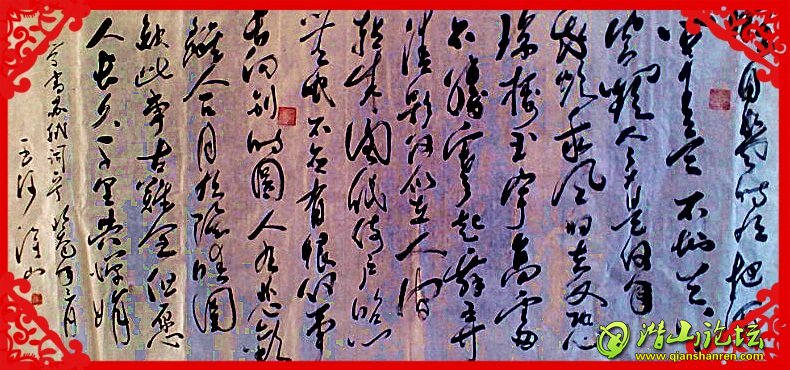 明月幾時有把酒
问青天不知天上
宫阙今夕是何年
我欲乘风归去又恐
琼楼玉宇高处
不勝寒起舞弄
清影何似在人间
转朱阁低绮户照
无眠不应有恨何事
长向别时圆人有悲歡
離合月有陰晴圆
缺此事古難全但愿
人長久千里共婵娟
苏轼词
潜山论坛
www.qianshanren.com